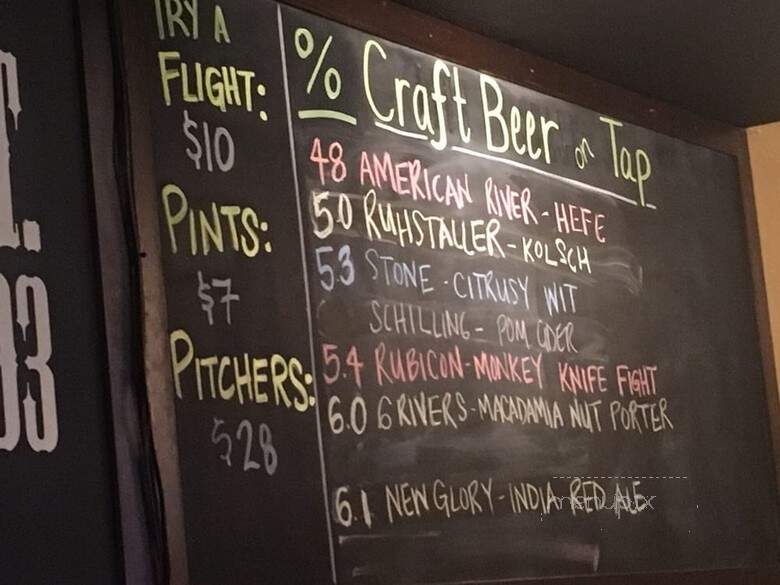 TRY A
FLIGHT:
$10
PINTS:
$7
PITCHERS:
$28
% Craft Beer on Tap
48 AMERICAN RIVER - HEFE
5.0 RUHSTALLER - KOLSCH
5.3 STONE - CITRUSY WIT
SCHILLING - POM CIDER
5.4 RUBICON - MONKEY KNIFE FIGHT
6.0 6 RIVERS - MACADAMIA NUT PORTER
6.1 NEW GLORY - INDIA RED ALE
menupix